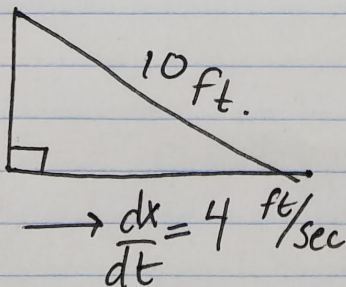 10 ft.
→ dx/dt = 4 ft/sec